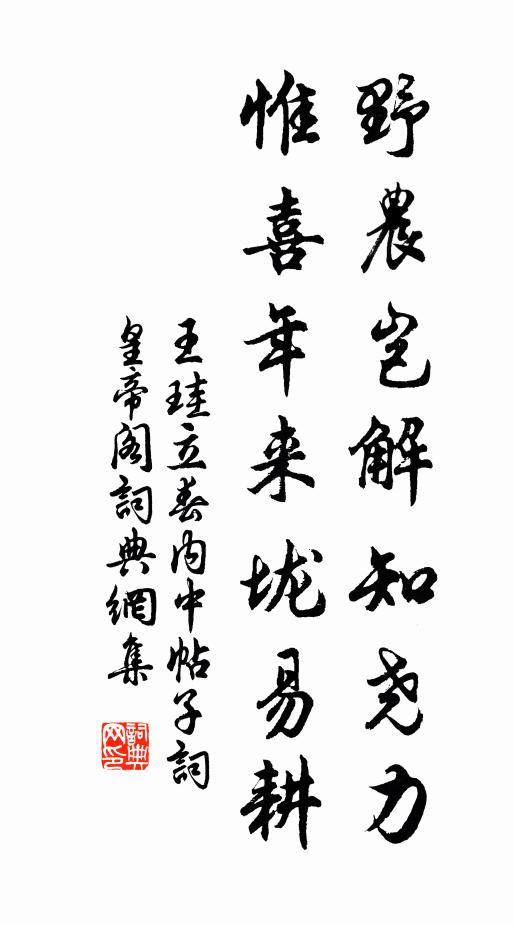 野農岂解知尧力
惟喜年来垅易耕
王珪立春内中帖子詞
皇帝阁詞典網集
詞典
网印